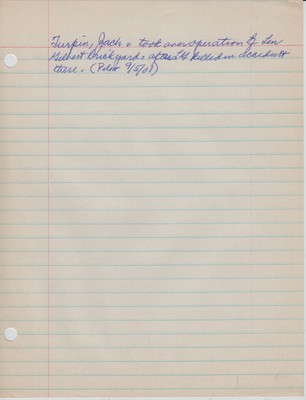 Turpin, Jack - took over operation of Len
Gilbert Brickyards after LG killed in accident
there. (Pilot 9/5/01)